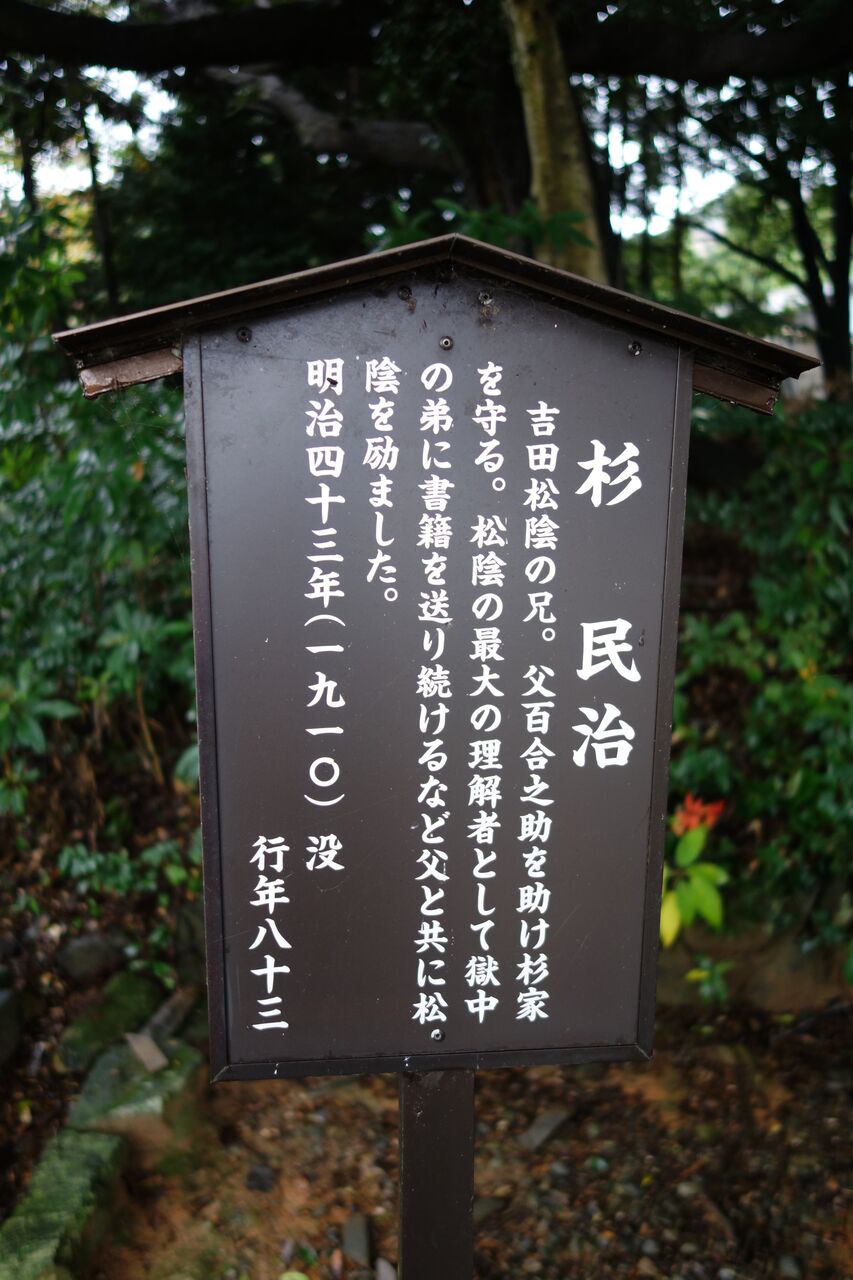 杉 民治
吉田松陰の兄。父百合之助を助け杉家
を守る。松陰の最大の理解者として獄中
の弟に書籍を送り続けるなど父と共に松
陰を励ました。
明治四十三年(一九一〇)没
行年八十三